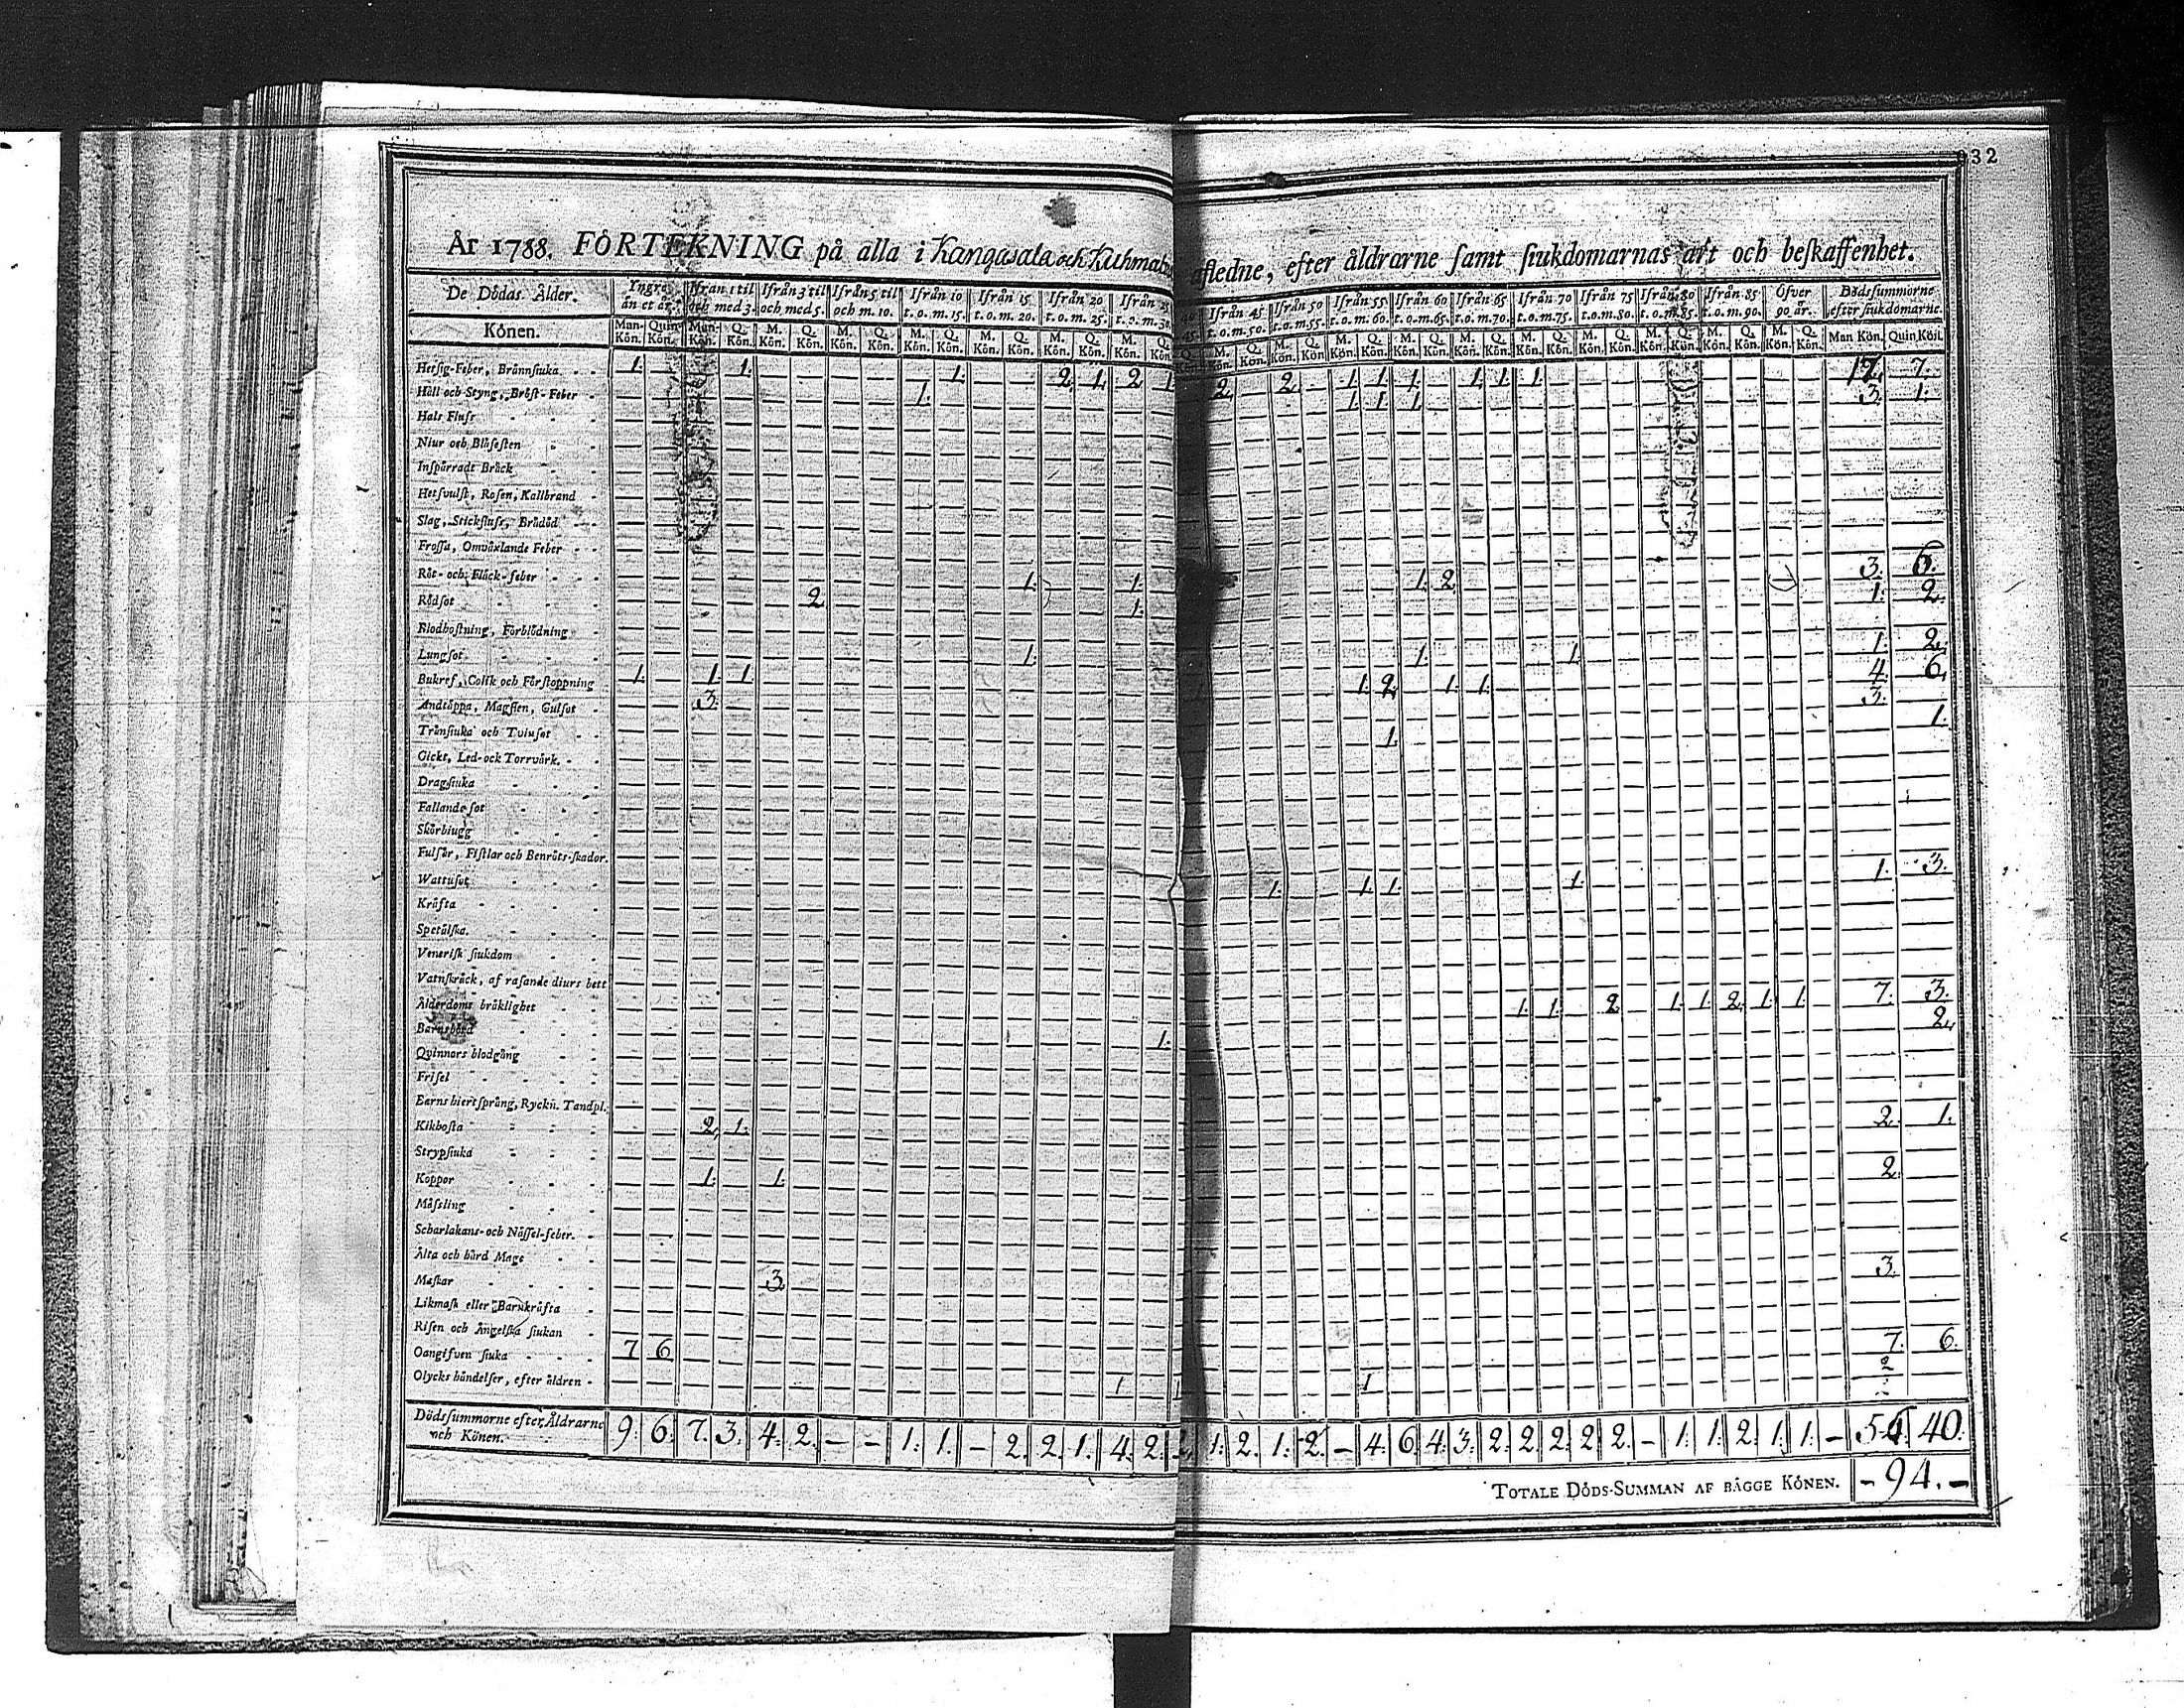 932
År 1788. FÖRTEKNING på alla i Kangasala och Kuhmala afledne, efter åldrarne samt siukdomarnas art och beskaffenhet.
De Dödas Ålder. Yngre än et år. Ifrån 1 til och med 3. Ifrån 3 til och med 5. Ifrån 5 til och m. 10. Ifrån 10 t. o. m. 15. Ifrån 15 t. o. m. 20. Ifrån 20 t. o. m. 25. Ifrån 25 t. o. m. 30. Ifrån 45 t. o. m. 50. Ifrån 50 t. o. m. 55. Ifrån 55 t. o. m. 60. Ifrån 60 t. o. m. 65. Ifrån 65 t. o. m. 70. Ifrån 70 t. o. m. 75. Ifrån 75 t. o. m. 80. Ifrån 80 t. o. m. 85. Ifrån 85 t. o. m. 90. Öfver 90 år. Dödssummorne efter siukdomarne.
Könen. Man-Kön. Quin-Kön. Man-Kön. Q. Kön. M. Kön. Q. Kön. M. Kön. Q. Kön. M. Kön. Q. Kön. M. Kön. Q. Kön. M. Kön. Q. Kön. M. Kön. Q. Kön. Q. Kön. M. Kön. Q. Kön. M. Kön. Q. Kön. M. Kön. Q. Kön. M. Kön. Q. Kön. M. Kön. Q. Kön. M. Kön. Q. Kön. M. Kön. Q. Kön. M. Kön. Q. Kön. M. Kön. Q. Kön. M. Kön. Q. Kön. Man Kön. Quin Kön.
Hetsig-Feber, Brännsiuka 1. 1. 1. 2. 1. 2. 1. 2. 2. 1. 1. 1. 1. 1. 1. 17. 7.
Håll och Styng, Bröst-Feber 1. 1. 1. 1. 3. 1.
Hals Fluss
Niur och Blåsesten
Inspärradt Bråck
Hetsvulst, Rosen, Kallbrand
Slag, Stickfluss, Brådöd
Frossa, Omväxlande Feber
Röt- och Fläck-feber 1. 1. 1. 2. 3. 6.
Rödsot 2 1. 1. 2.
Blodhostning, Förblödning
Lungsot 1. 1. 1. 1. 2.
Bukref, Colik och Förstoppning 1. 1. 1. 1. 2. 1. 1. 4. 6.
Andtäppa, Magsien, Gulsot 3. 3.
Trånsiuka och Tvinsot 1. 1.
Gickt, Led-ock Torrvärk.
Dragsiuka
Fallande sot
Skörbiugg
Fulsår, Fistlar och Benröts-skador.
Wattusot 1. 1. 1. 1. 1. 3.
Kräfta
Spetälska.
Venerisk siukdom
Vatnskräck, af rasande diurs bett
Ålderdoms bräklighet 1. 1. 2. 1. 1. 2. 1. 1. 7. 3.
Barnsbörd 1. 2.
Qvinnors blodgång
Frisel
Barns hiertsprång, Ryckn. Tandpl.
Kikhosta 2. 1. 2. 1.
Strypsiuka
Koppor 1. 1. 2.
Mässling
Scharlakans- och Nässel-feber.
Älta och hård Mage
Maskar 3. 3.
Likmask eller Barnkräfta
Risen och Ängelska siukan
Oangifven siuka 7 6 7. 6.
Olycks händelser, efter äldren 1 1 1 2
Dödssummorne efter Åldrarne och Könen. 9. 6. 7. 3. 4. 2. — — 1. 1. — 2. 2. 1. 4. 2. 2. 1. 2. 1. 2. — 4. 6. 4. 3. 2. 2. 2. 2. 2. — 1. 1. 2. 1. 1. — 54. 40.
TOTALE DÖDS-SUMMAN AF BÄGGE KÖNEN. -94.-